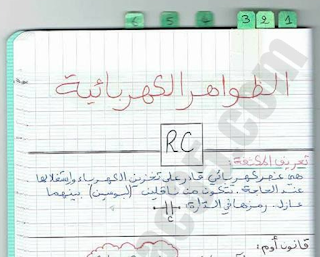 1 2 3 4 5 6
الظواهر الكهربائية
RC
تعريف المكثفة:
هي عنصر كهربائي قادر على تخزين الكهرباء واستغلالها
عند الحاجة. تتكون من ناقلين (لبوسين) بينهما
عازل. رمزها في الدارة
C
قانون أوم: